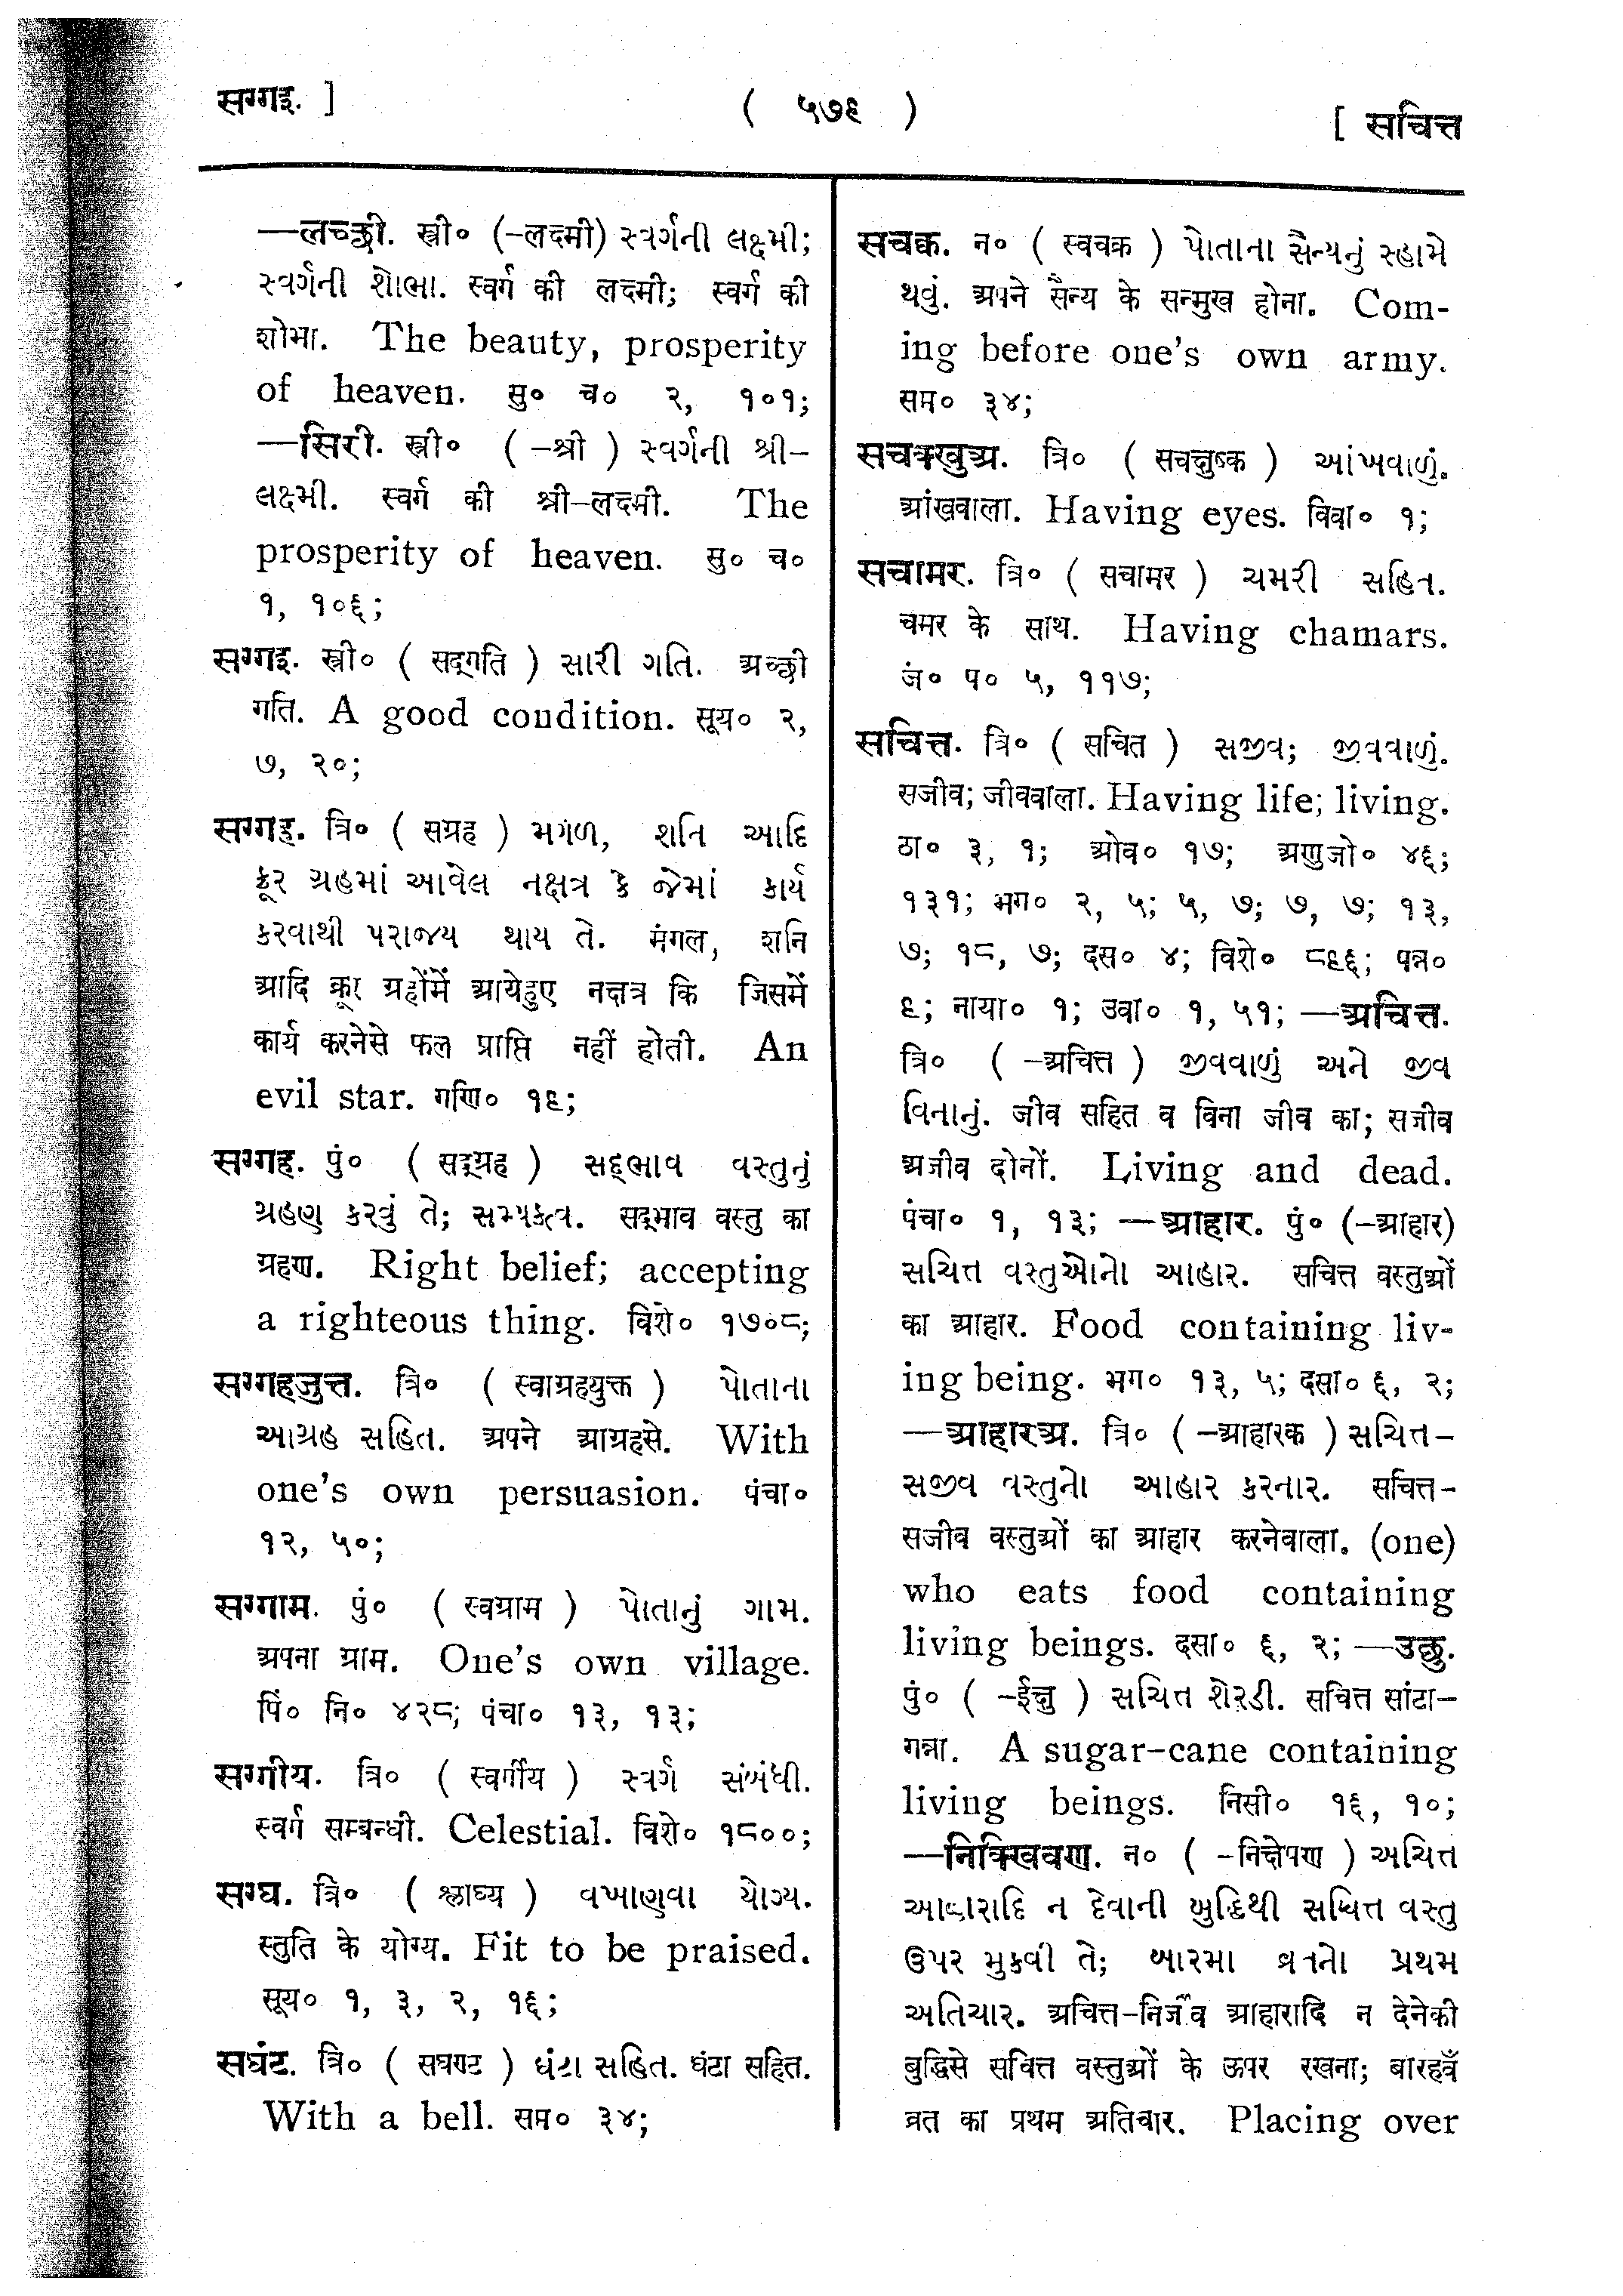 सग्गइ. ]
( ५७९ )
[ सचित्त
—लच्छी. स्त्री० (-लक्ष्मी) સ્વર્ગની લક્ષ્મી;
સ્વર્ગની શોભા. स्वर्ग की लक्ष्मी; स्वर्ग की
शोभा. The beauty, prosperity
of heaven. सु० च० २, १०१;
—सिरी. स्त्री० (-श्री ) સ્વર્ગની શ્રી-
લક્ષ્મી. स्वर्ग की श्री-लक्ष्मी. The
prosperity of heaven. सु० च०
१, १०६;
सग्गइ. स्त्री० ( सद्गति ) સારી ગતિ. अच्छी
गति. A good condition. सूय० २,
७, २०;
सग्गह. त्रि० ( सग्रह ) મગંળ, શનિ આદિ
ક્રૂર ગ્રહમાં આવેલ નક્ષત્ર કે જેમાં કાર્ય
કરવાથી પરાજય થાય તે. मंगल, शनि
आदि क्रूर ग्रहोंमें आयेहुए नक्षत्र कि जिसमें
कार्य करनेसे फल प्राप्ति नहीं होती. An
evil star. गणि० १९;
सग्गह. पुं० ( सद्ग्रह ) સદ્ભાવ વસ્તુનું
ગ્રહણ કરવું તે; સમ્યક્ત્વ. सद्भाव वस्तु का
ग्रहण. Right belief; accepting
a righteous thing. विशे० १७०८;
सग्गहजुत्त. त्रि० ( स्वाग्रहयुक्त ) પોતાના
આગ્રહ સહિત. अपने आग्रहसे. With
one's own persuasion. पंचा०
१२, ५०;
सग्गाम. पुं० ( स्वग्राम ) પોતાનું ગામ.
अपना ग्राम. One's own village.
पिं० नि० ४२८; पंचा० १३, १३;
सग्गीय. त्रि० ( स्वर्गीय ) સ્વર્ગ સંબંધી.
स्वर्ग सम्बन्धी. Celestial. विशे० १८००;
सग्घ. त्रि० ( श्लाघ्य ) વખાણવા યોગ્ય.
स्तुति के योग्य. Fit to be praised.
सूय० १, ३, २, १६;
सघंट. त्रि० ( सघण्ट ) ઘંટા સહિત. घंटा सहित.
With a bell. सम० ३४;
सचक्क. न० ( स्वचक्र ) પોતાના સૈન્યનું સ્હામે
થવું. अपने सैन्य के सन्मुख होना. Com-
ing before one's own army.
सम० ३४;
सचक्खुअ. त्रि० ( सचक्षुष्क ) આંખવાળું.
आंखवाला. Having eyes. विवा० १;
सचामर. त्रि० ( सचामर ) ચમરી સહિત.
चमर के साथ. Having chamars.
जं० प० ५, ११७;
सचित्त. त्रि० ( सचित ) સજીવ; જીવવાળું.
सजीव; जीववाला. Having life; living.
ठा० ३, १; ओव० १७; अणुजो० ४६;
१३१; भग० २, ५; ५, ७; ७, ७; १३,
७; १८, ७; दस० ४; विशे० ८९६; पन्न०
९; नाया० १; उवा० १, ५१; —अचित्त.
त्रि० ( -अचित्त ) જીવવાળું અને જીવ
વિનાનું. जीव सहित व विना जीव का; सजीव
अजीव दोनों. Living and dead.
पंचा० १, १३; —आहार. पुं० (-आहार)
સચિત્ત વસ્તુઓનો આહાર. सचित्त वस्तुओं
का आहार. Food containing liv-
ing being. भग० १३, ५; दसा० ६, २;
—आहारअ. त्रि० ( -आहारक ) સચિત્ત-
સજીવ વસ્તુનો આહાર કરનાર. सचित्त-
सजीव वस्तुओं का आहार करनेवाला. (one)
who eats food containing
living beings. दसा० ६, २; —उच्छु.
पुं० ( -ईक्षु ) સચિત્ત શેરડી. सचित्त सांटा-
गन्ना. A sugar-cane containing
living beings. निसी० १६, १०;
—निक्खिवण. न० ( -निक्षेपण ) અચિત્ત
આહારાદિ ન દેવાની બુદ્ધિથી સચિત્ત વસ્તુ
ઉપર મુકવી તે; બારમા વ્રતનો પ્રથમ
અતિચાર. अचित्त-निर्जीव आहारादि न देनेकी
बुद्धिसे सचित्त वस्तुओं के ऊपर रखना; बारहवँ
व्रत का प्रथम अतिचार. Placing over